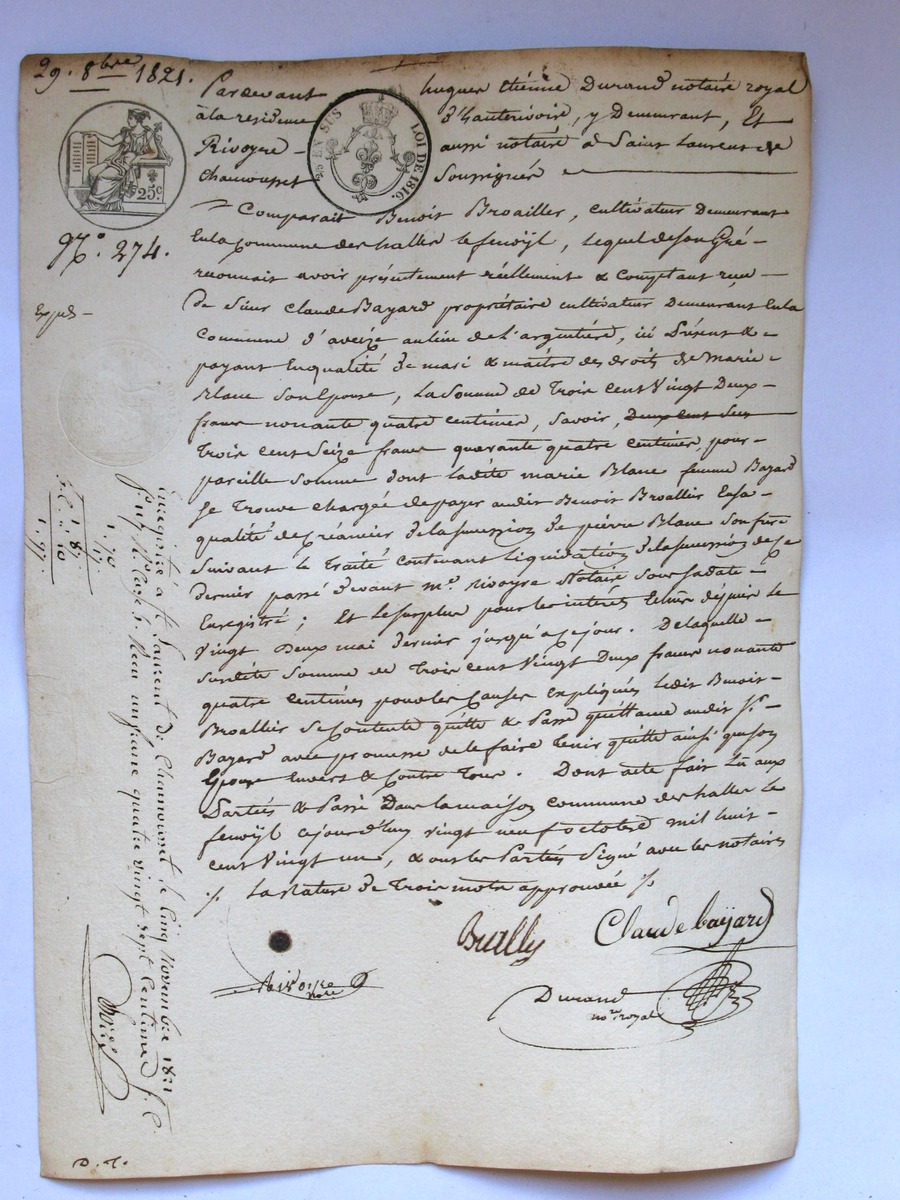 29. 8bre 1821.
Pardevant hugues étienne Durand notaire royal
à la residence d'hauterivoire, y Demeurant, Et
Rivoyre - aussi notaire à Saint Laurent de
Chamousset Soussignés
EN SUS
LOI DE 1816.
25c.
N.° 274.
Comparait Benoit Broallier, cultivateur Demeurant
En la Commune des halles le fenoÿl, lequel de son Gré -
reconnait avoir présentement réellement & Comptant reçu -
De Sieur Claude Bayard propriétaire cultivateur Demeurant En la
Commune d'aveize au lieu de l'argentière, ici Présent &
payant En qualité de mari & maitre des droits de Marie -
Blanc Son Epouse, La Somme de Trois Cent Vingt Deux -
francs nonante quatre centimes, Savoir, Deux cent
Trois Cent Seize francs quarante quatre centimes, pour -
pareille Somme dont ladite marie Blanc femme Bayard
Se Trouve chargée de payer audit Benoit Broallier En sa -
qualité de Créancier de la succession de pierre Blanc Son frère
Suivant le Traité contenant Liquidation de la succession de Ce
dernier passé devant me. rivoyre Notaire Sous Sa date -
Enregistré ; Et le surplus pour les intérêts depuis le
Vingt Deux mai dernier jusqu'à Ce jour. De laquelle -
Susdite Somme de Trois Cent Vingt Deux francs nonante
quatre Centimes pour les Causes Expliquées Ledit Benoit -
Broallier Se Contente quitte & Passe quittance audit Sr. -
Bayard avec promesse de le faire Tenir quitte ainsi que son
Epouse Envers & Contre Tous. Dont acte fait Lu aux
Parties & Passé Dans la maison Commune des halles le
fenoÿl Cejourd'hui vingt neuf octobre mil huit -
cent Vingt un, & ont les Parties Signé avec les notaires
./. La Rature de Trois mots approuvée ./.
Broally
Claude baÿard
Rivoire
nore
Durand
nore. royal
1.70
17
1.87
10
1.97
Enregistré à St Laurent de Chamousset le Cinq Novembre 1821
Reçu un franc quatre vingt Sept Centimes
D. T.